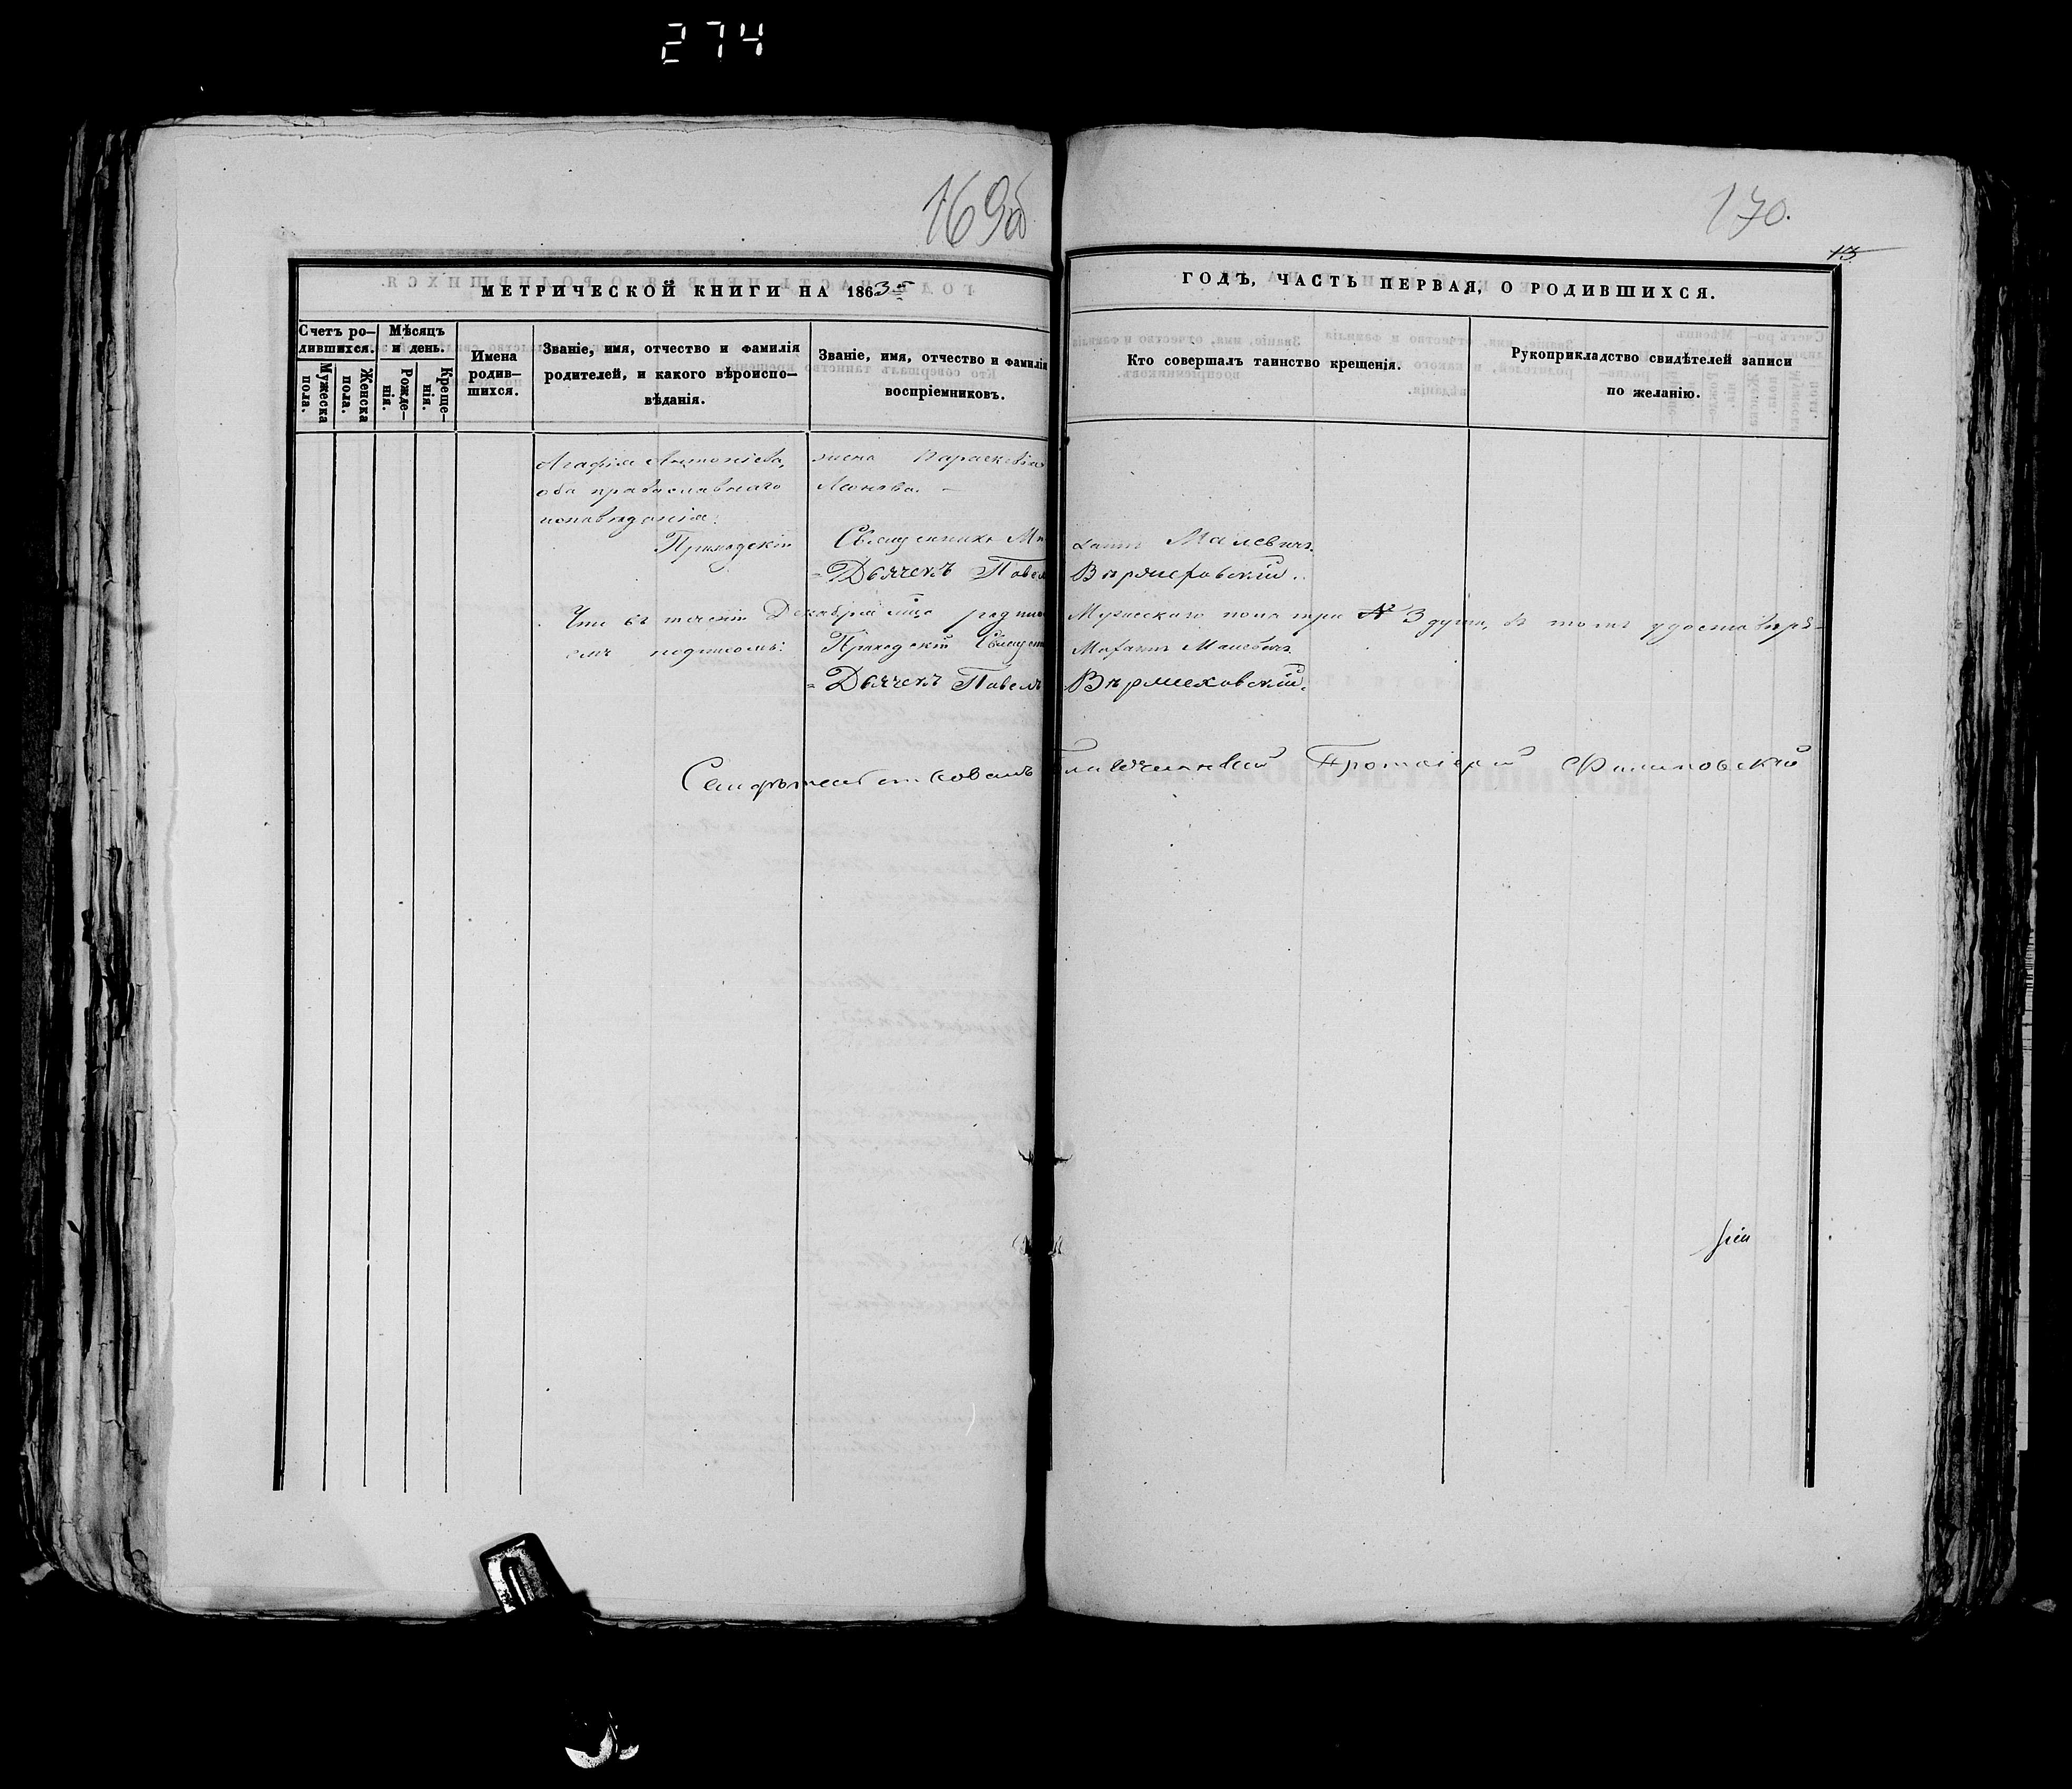 274
169об
170.
13
МЕТРИЧЕСКОЙ КНИГИ НА 1863й
ГОДЪ, ЧАСТЬ ПЕРВАЯ, О РОДИВШИХСЯ.
Счетъ ро–
дившихся.
Мужеска
пола.
Женска
пола.
Мѣсяцъ
и день.
Рожде–
нія.
Креще–
нія.
Имена
родив–
шихся.
Званіе, имя, отчество и фамилія
родителей, и какого вѣроиспо–
вѣданія.
Званіе, имя, отчество и фамилія
воспріемниковъ.
Кто совершалъ таинство крещенія.
Рукоприкладство свидѣтелей записи
по желанію.
Агафія Антоніева,
оба православнаго
исповѣданія.
жена Параскевія
Леонова.
Приходскій Священникъ Малевичъ.
Дьячекъ Павелъ
Что въ теченіи Декабря м-ца Мужескаго пола три № 3 души, въ томъ удостовѣря–
емъ подписомъ: Приходскій Малевичъ
Дьячекъ Павелъ
Свидѣтельствовалъ Благочинный Протоіерей Филиповскій